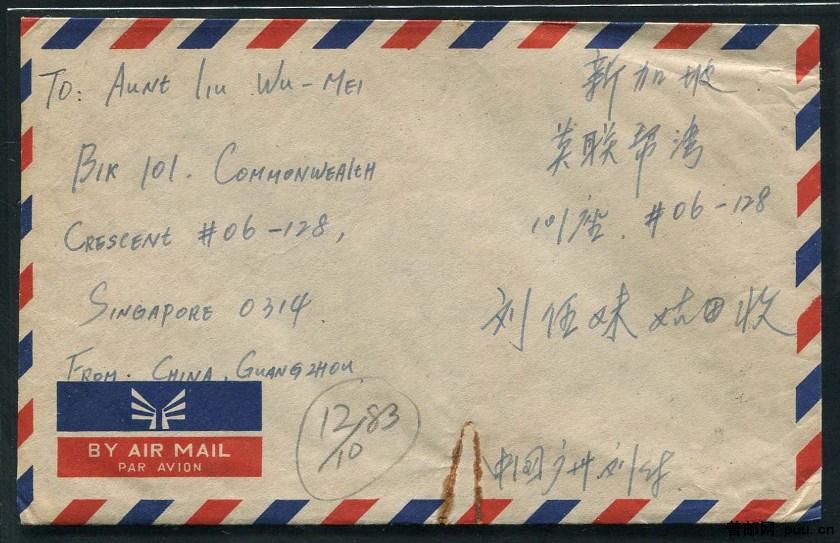 To: Aunt Liu Wu-Mei
Blk 101. Commonwealth
Crescent #06-128,
Singapore 0314
From. China, Guangzhou
BY AIR MAIL
PAR AVION
12/10 83
新加坡
英联邦湾
101座. #06-128
刘伍妹姑 收
中国广州刘
puu.cn